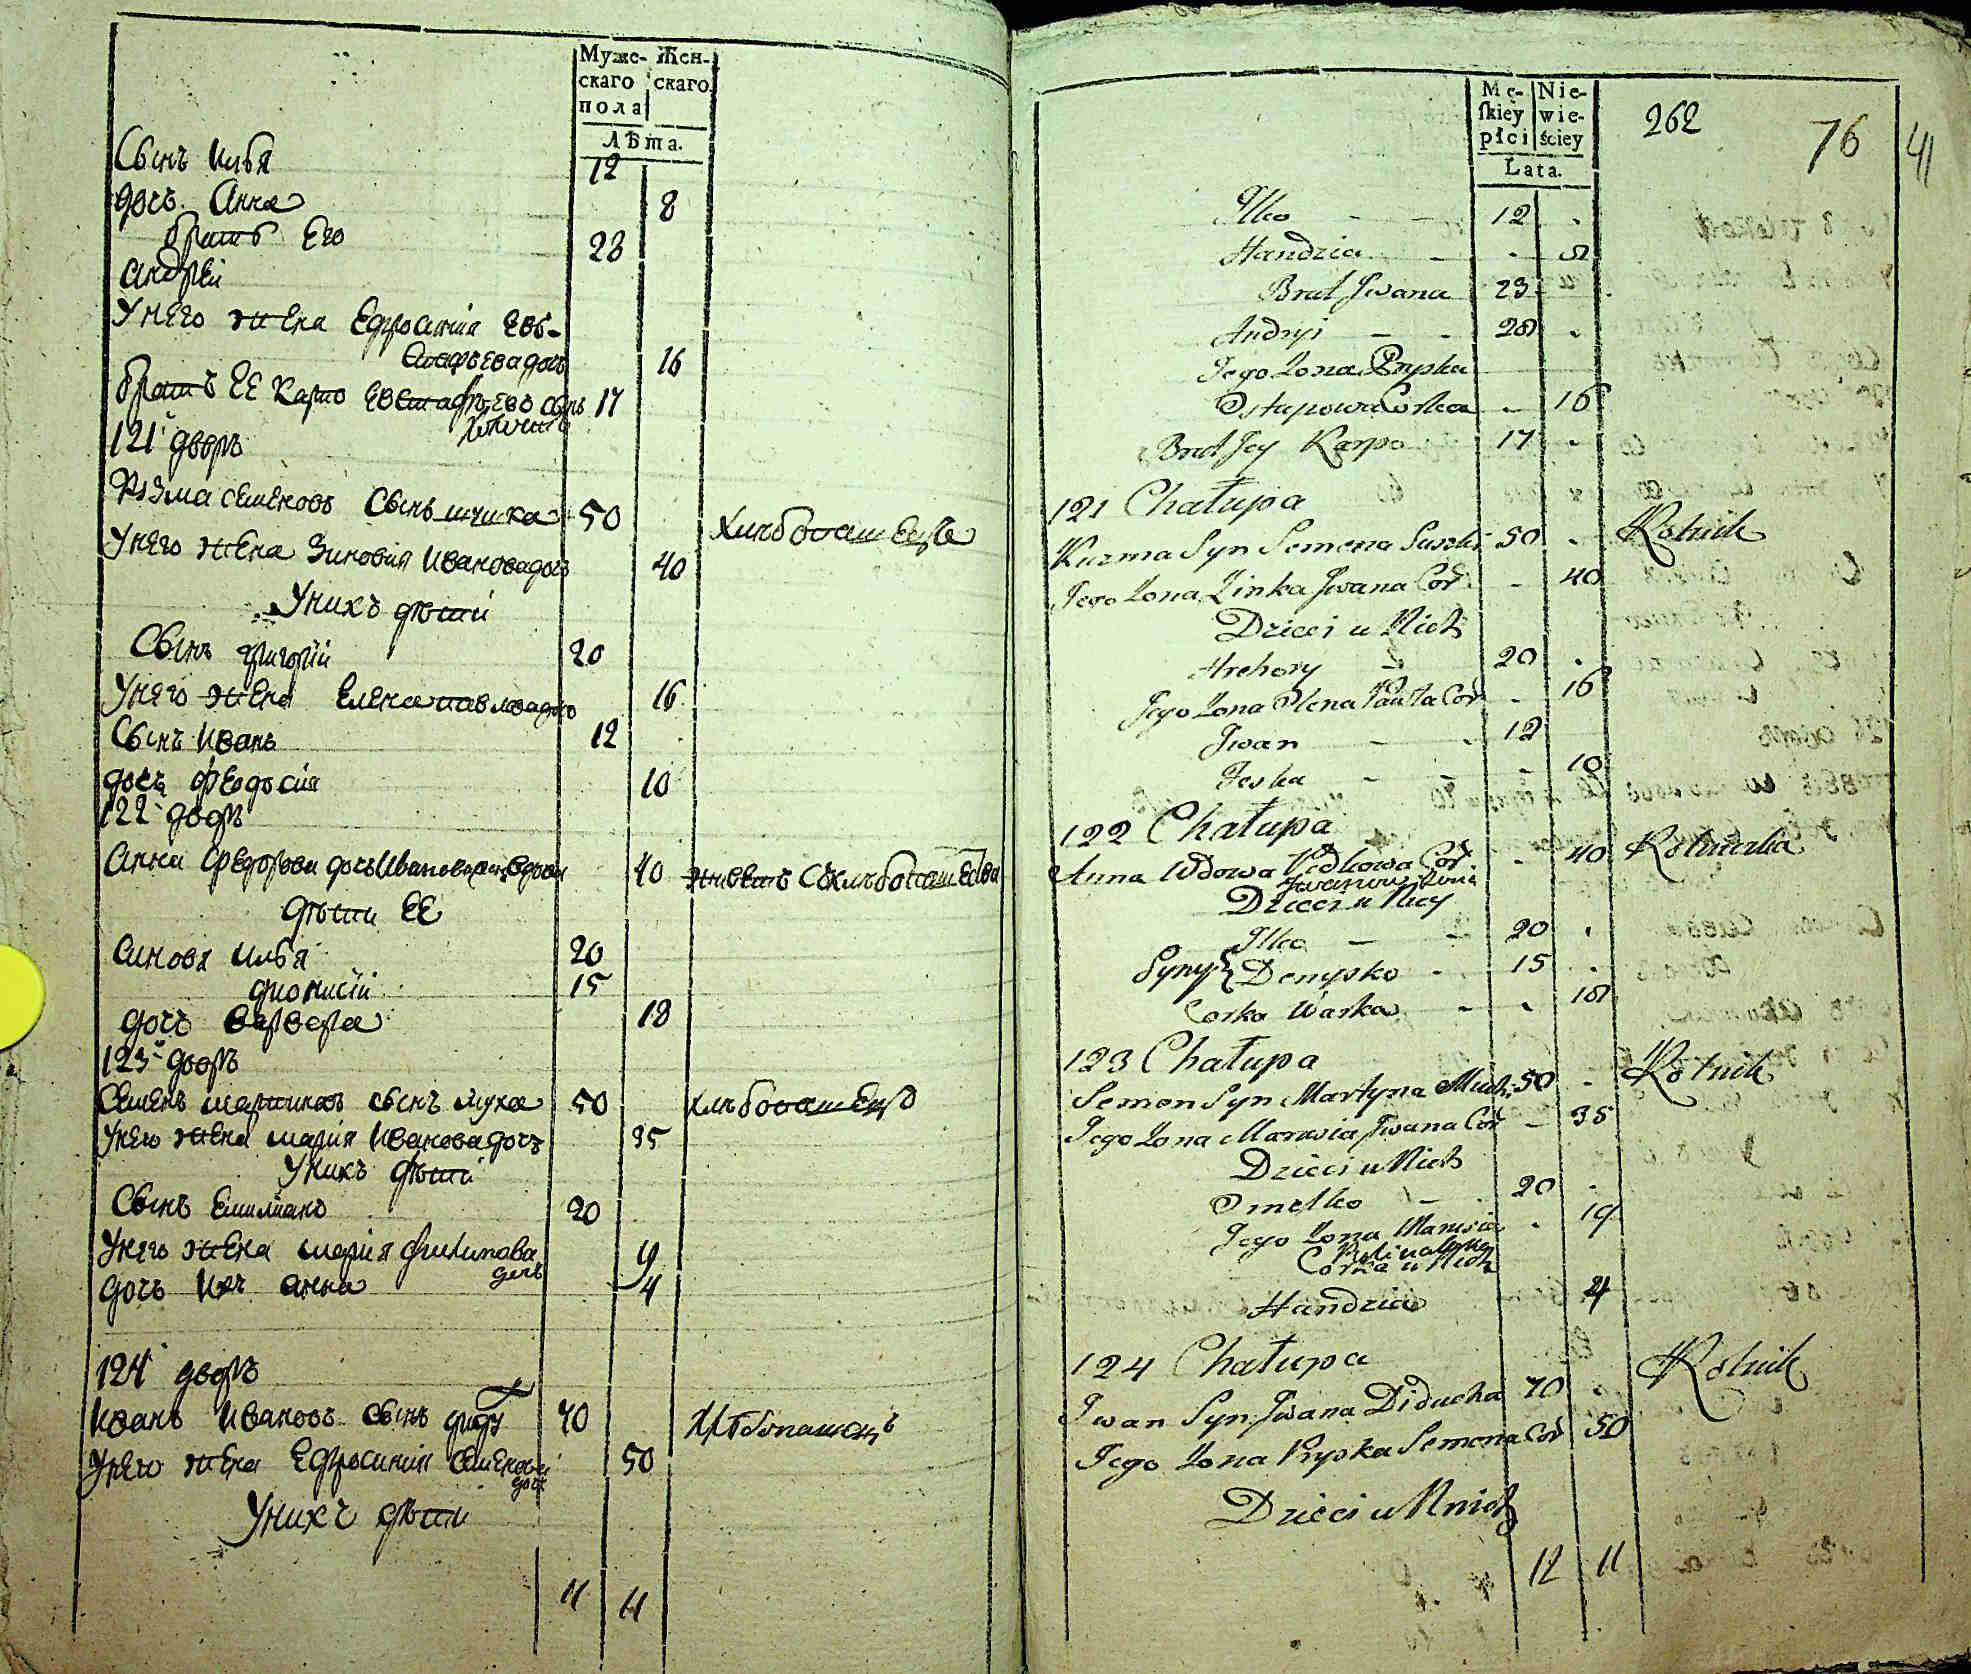 Муже-
скаго
пола
Жен-
скаго
Лѣта.
Сынъ Илья 12
дочь Анна 8
братъ Его 28
Андрей
У него жена Ефросинія Евъ-
стафъева дочь 16
братъ ЕЕ Карпо Евстафъевъ сынъ 17
121 дворъ
Кузма Семеновъ Сынъ 50 Хлѣбопашецъ
У него жена Зиновия Иванова дочь 40
У нихъ дѣти
Сынъ Григорій 20
У него жена Елена Павлова дочь 16
Сынъ Иванъ 12
дочь Феодосия 10
122 дворъ
Анна Федорова дочь Ивановская вдова 40 живетъ Съ хлѣбопашества
дѣти ЕЕ
Синовя Илья 20
Дионисій 15
дочь Варвара 18
123 дворъ
Семенъ Мартиновъ сынъ Муха 50 хлѣбопашецъ
У него жена Мария Иванова дочь 35
У нихъ дѣти
Сынъ Емилианъ 20
У него жена Мария Филипова
дочь 19
дочь Ихъ Анна 4
124 дворъ
Иванъ Ивановъ сынъ дидух 70 Хлѣбопашецъ
У него жена Ефросиния Семенова
дочь 50
У нихъ дѣти
11 11
Mę-
skiey
płci
Nie-
wie-
ściey
Lata.
262
76
41
Ilko 12
Handzia 8
Brat Jwana 23
Andryi 28
Jego Zona Pryska
Ostapowa Corka 16
Brat Jey Karpo 17
121 Chałupa
Kuzma Syn Semena Suszki 50 Rolnik
Jego Zona Zinka Jwana Cor 40
Dzieci u Nich
Hrehory 20
Jego Zona Olena Pawła Cor 16
Jwan 12
Jeska 10
122 Chałupa
Anna Wdowa Fedkowa Cor 40 Rolniczka
Jwanow Zona
Dzieci u Niey
Ilko 20
Syny Denysko 15
Corka Warka 18
123 Chałupa
Semon Syn Martyna Muchi 50 Rolnik
Jego Zona Marusia Jwana Cor 35
Dzieci u Nich
Omelko 20
Jego Zona Marusia 19
Corka u Nich
Handzia 4
124 Chałupa
Jwan Syn Jwana Diducha 70 Rolnik
Jego Zona Pryska Semena Cor 50
Dzieci u Nich
12 11